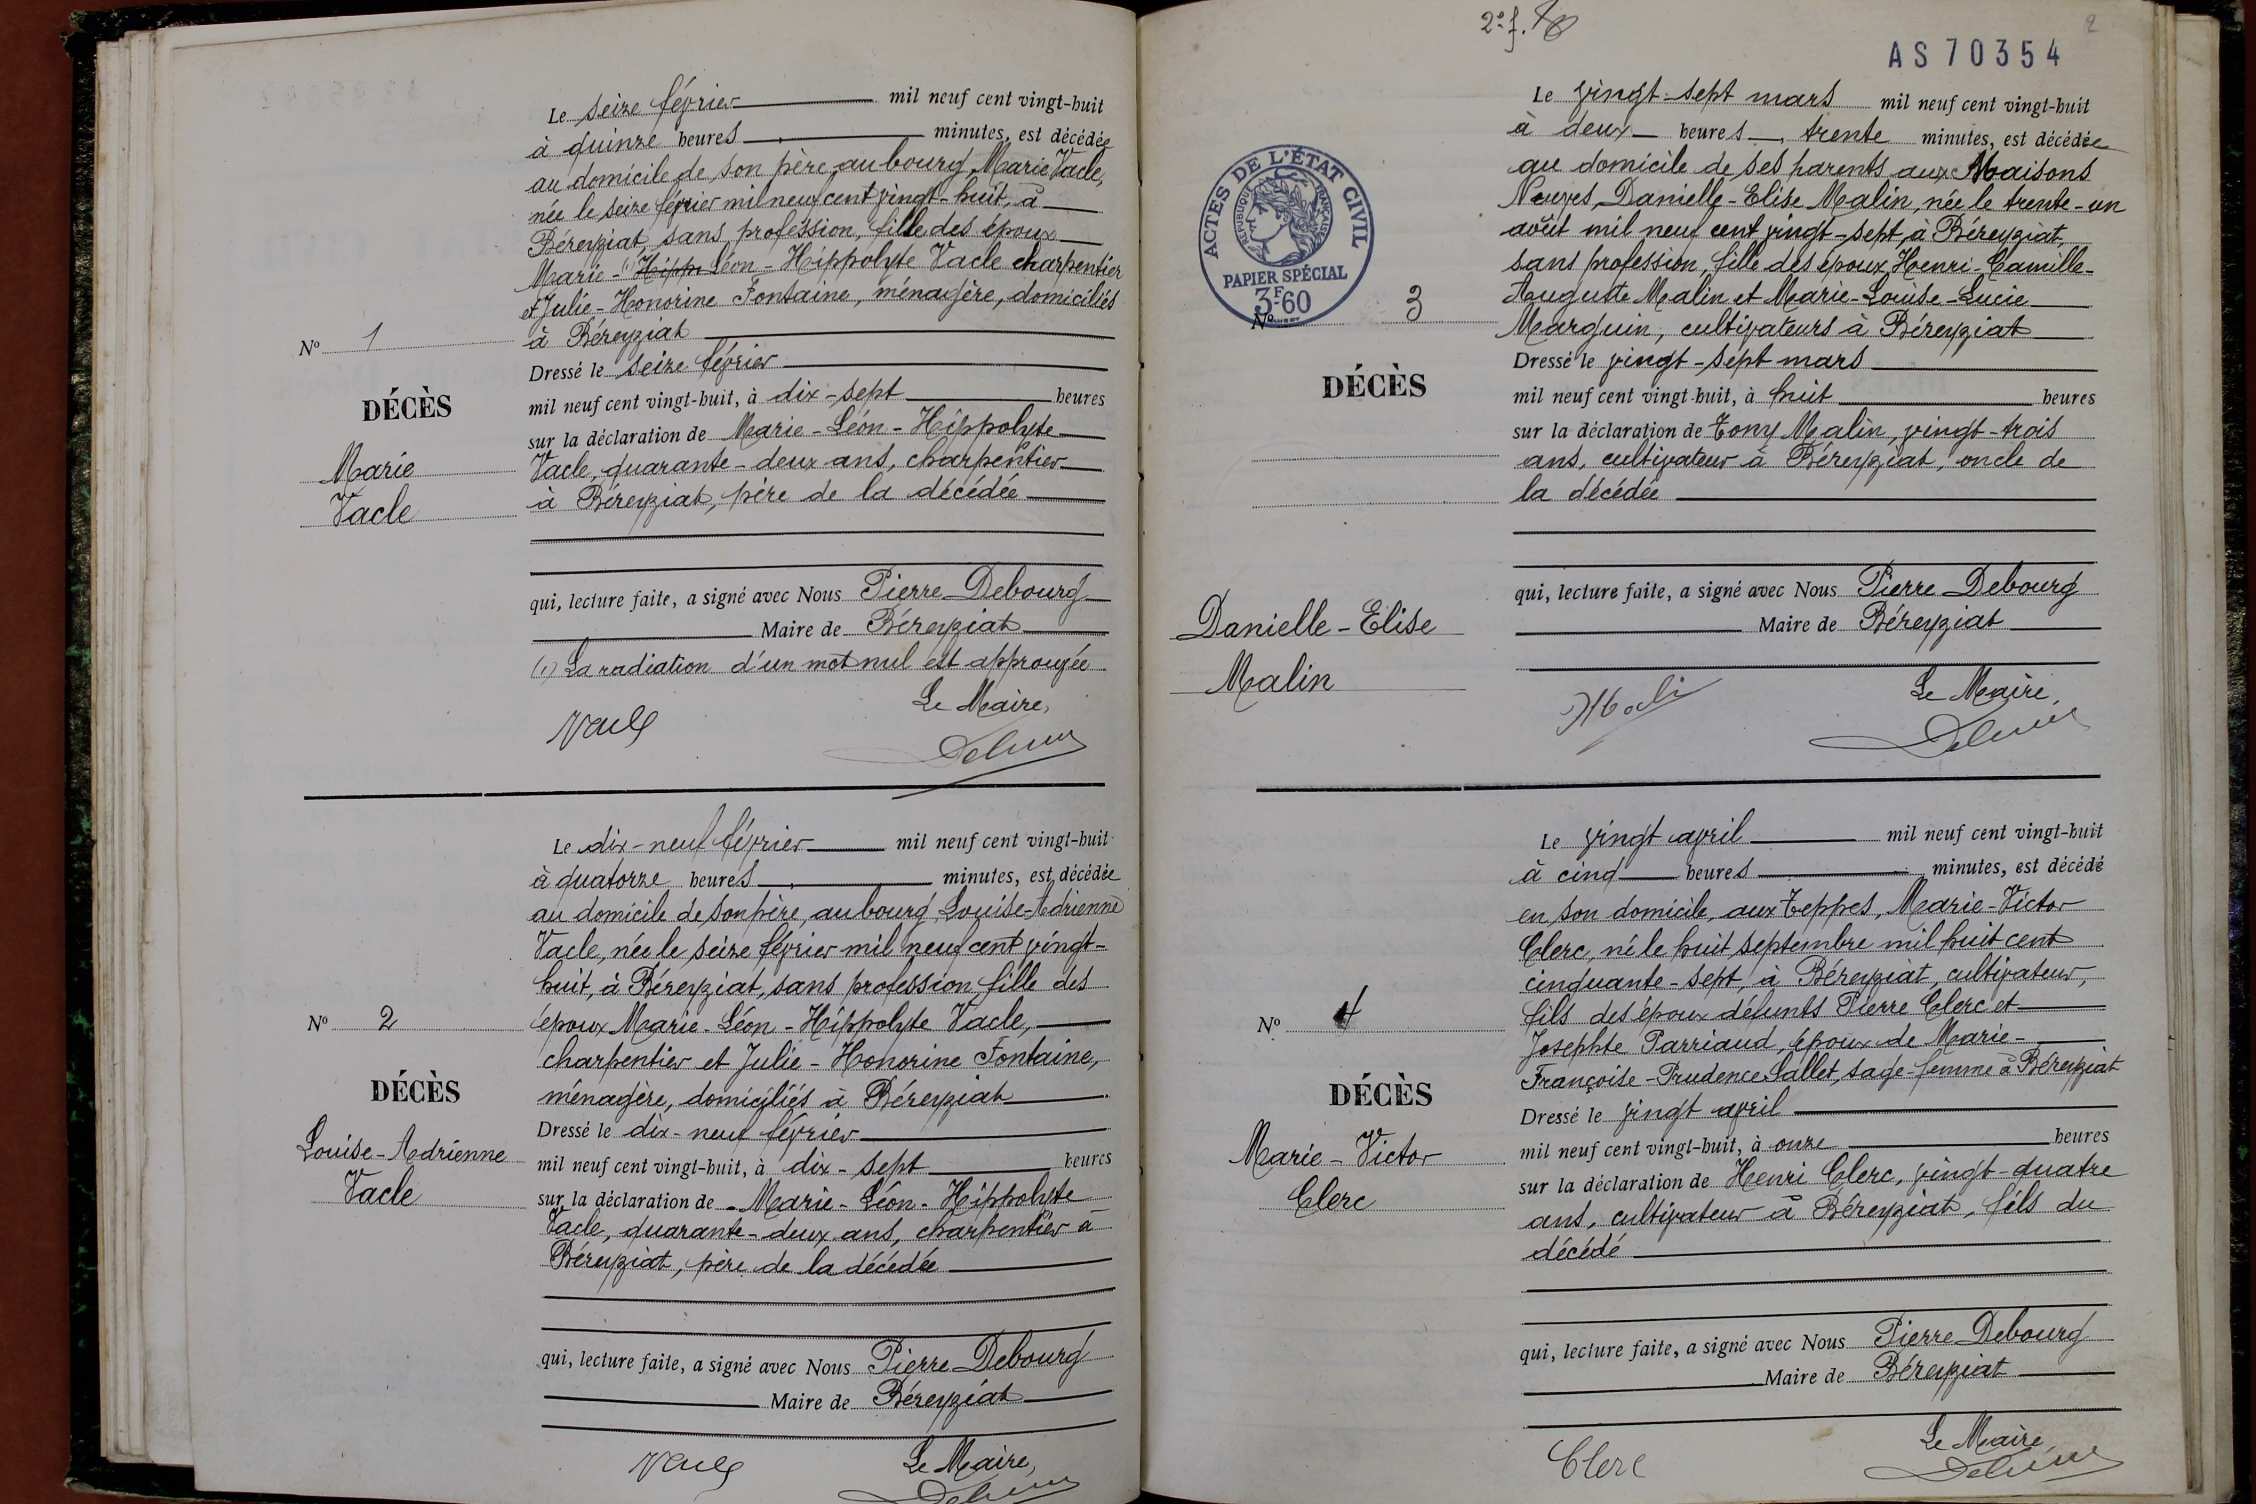 Le seize février mil neuf cent vingt-huit
à quinze heures minutes, est décédée
au domicile de son père, au bourg, Marie Vacle,
née le seize février mil neuf cent vingt-huit, à
Béreyziat, sans profession, fille des époux
Marie-(1) Hipp Léon-Hippolyte Vacle charpentier
et Julie-Honorine Fontaine, ménagère, domiciliés
à Béreyziat
Nº 1
Dressé le seize février
DÉCÈS
mil neuf cent vingt-huit, à dix-sept heures
sur la déclaration de Marie-Léon-Hippolyte
Marie
Vacle, quarante-deux ans, charpentier
Vacle
à Béreyziat, père de la décédée
qui, lecture faite, a signé avec Nous Pierre Debourg
Maire de Béreyziat
(1) La radiation d'un mot nul est approuvée
Le Maire,
Vacle
Le dix-neuf février mil neuf cent vingt-huit
à quatorze heures minutes, est décédée
au domicile de son père, au bourg, Louise-Adrienne
Vacle, née le seize février mil neuf cent vingt-
huit, à Béreyziat, sans profession, fille des
Nº 2
époux Marie-Léon-Hippolyte Vacle,
charpentier et Julie-Honorine Fontaine,
DÉCÈS
ménagère, domiciliés à Béreyziat
Dressé le dix-neuf février
Louise-Adrienne
mil neuf cent vingt-huit, à dix-sept heures
Vacle
sur la déclaration de Marie-Léon-Hippolyte
Vacle, quarante-deux ans, charpentier à
Béreyziat, père de la décédée
qui, lecture faite, a signé avec Nous Pierre Debourg
Maire de Béreyziat
Vacle
Le Maire,
2º f.
2
AS 70354
Le vingt-sept mars mil neuf cent vingt-huit
à deux heures, trente minutes, est décédée
au domicile de ses parents aux Maisons
Neuves, Danielle-Elise Malin, née le trente-un
août mil neuf cent vingt-sept, à Béreyziat,
sans profession, fille des époux Henri-Camille-
Auguste Malin et Marie-Louise-Lucie
Marguin, cultivateurs à Béreyziat
ACTES DE L'ÉTAT CIVIL
RÉPUBLIQUE FRANÇAISE
PAPIER SPÉCIAL
3F60
Nº 3
Dressé le vingt-sept mars
DÉCÈS
mil neuf cent vingt-huit, à huit heures
sur la déclaration de Tony Malin, vingt-trois
ans, cultivateur à Béreyziat, oncle de
la décédée
qui, lecture faite, a signé avec Nous Pierre Debourg
Danielle-Elise
Maire de Béreyziat
Malin
Le Maire,
Le vingt avril mil neuf cent vingt-huit
à cinq heures minutes, est décédé
en son domicile, aux Teppes, Marie-Victor
Clerc, né le huit septembre mil huit cent
cinquante-sept, à Béreyziat, cultivateur,
fils des époux défunts Pierre Clerc et
Nº 4
Josephte Parriaud, époux de Marie-
Françoise-Prudence Sallet, sage-femme à Béreyziat
DÉCÈS
Dressé le vingt avril
mil neuf cent vingt-huit, à onze heures
Marie-Victor
sur la déclaration de Henri Clerc, vingt-quatre
Clerc
ans, cultivateur à Béreyziat, fils du
décédé
qui, lecture faite, a signé avec Nous Pierre Debourg
Maire de Béreyziat
Le Maire,
Clerc